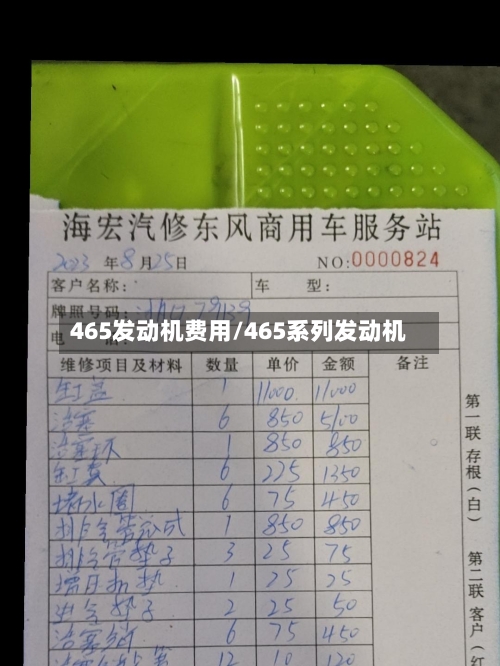 海宏汽修东风商用车服务站
2023 年 8 月 25 日 NO:0000824
客户名称: 车 型:
牌照号码:
465发动机费用/465系列发动机
电
维修项目及材料 数量 单价 金额 备注
缸盖 1 11000 11000
活塞 6 850 5100
活塞环 1 850 850
缸套 6 225 1350
堵水圈 6 75 450
排气管总成 1 850 850
排气管垫子 3 25 75
增压机垫 1 25 25
进气垫子 2 25 50
活塞销 6 75 450
12 10 120
第一联 存根(白)
第二联 客户(红